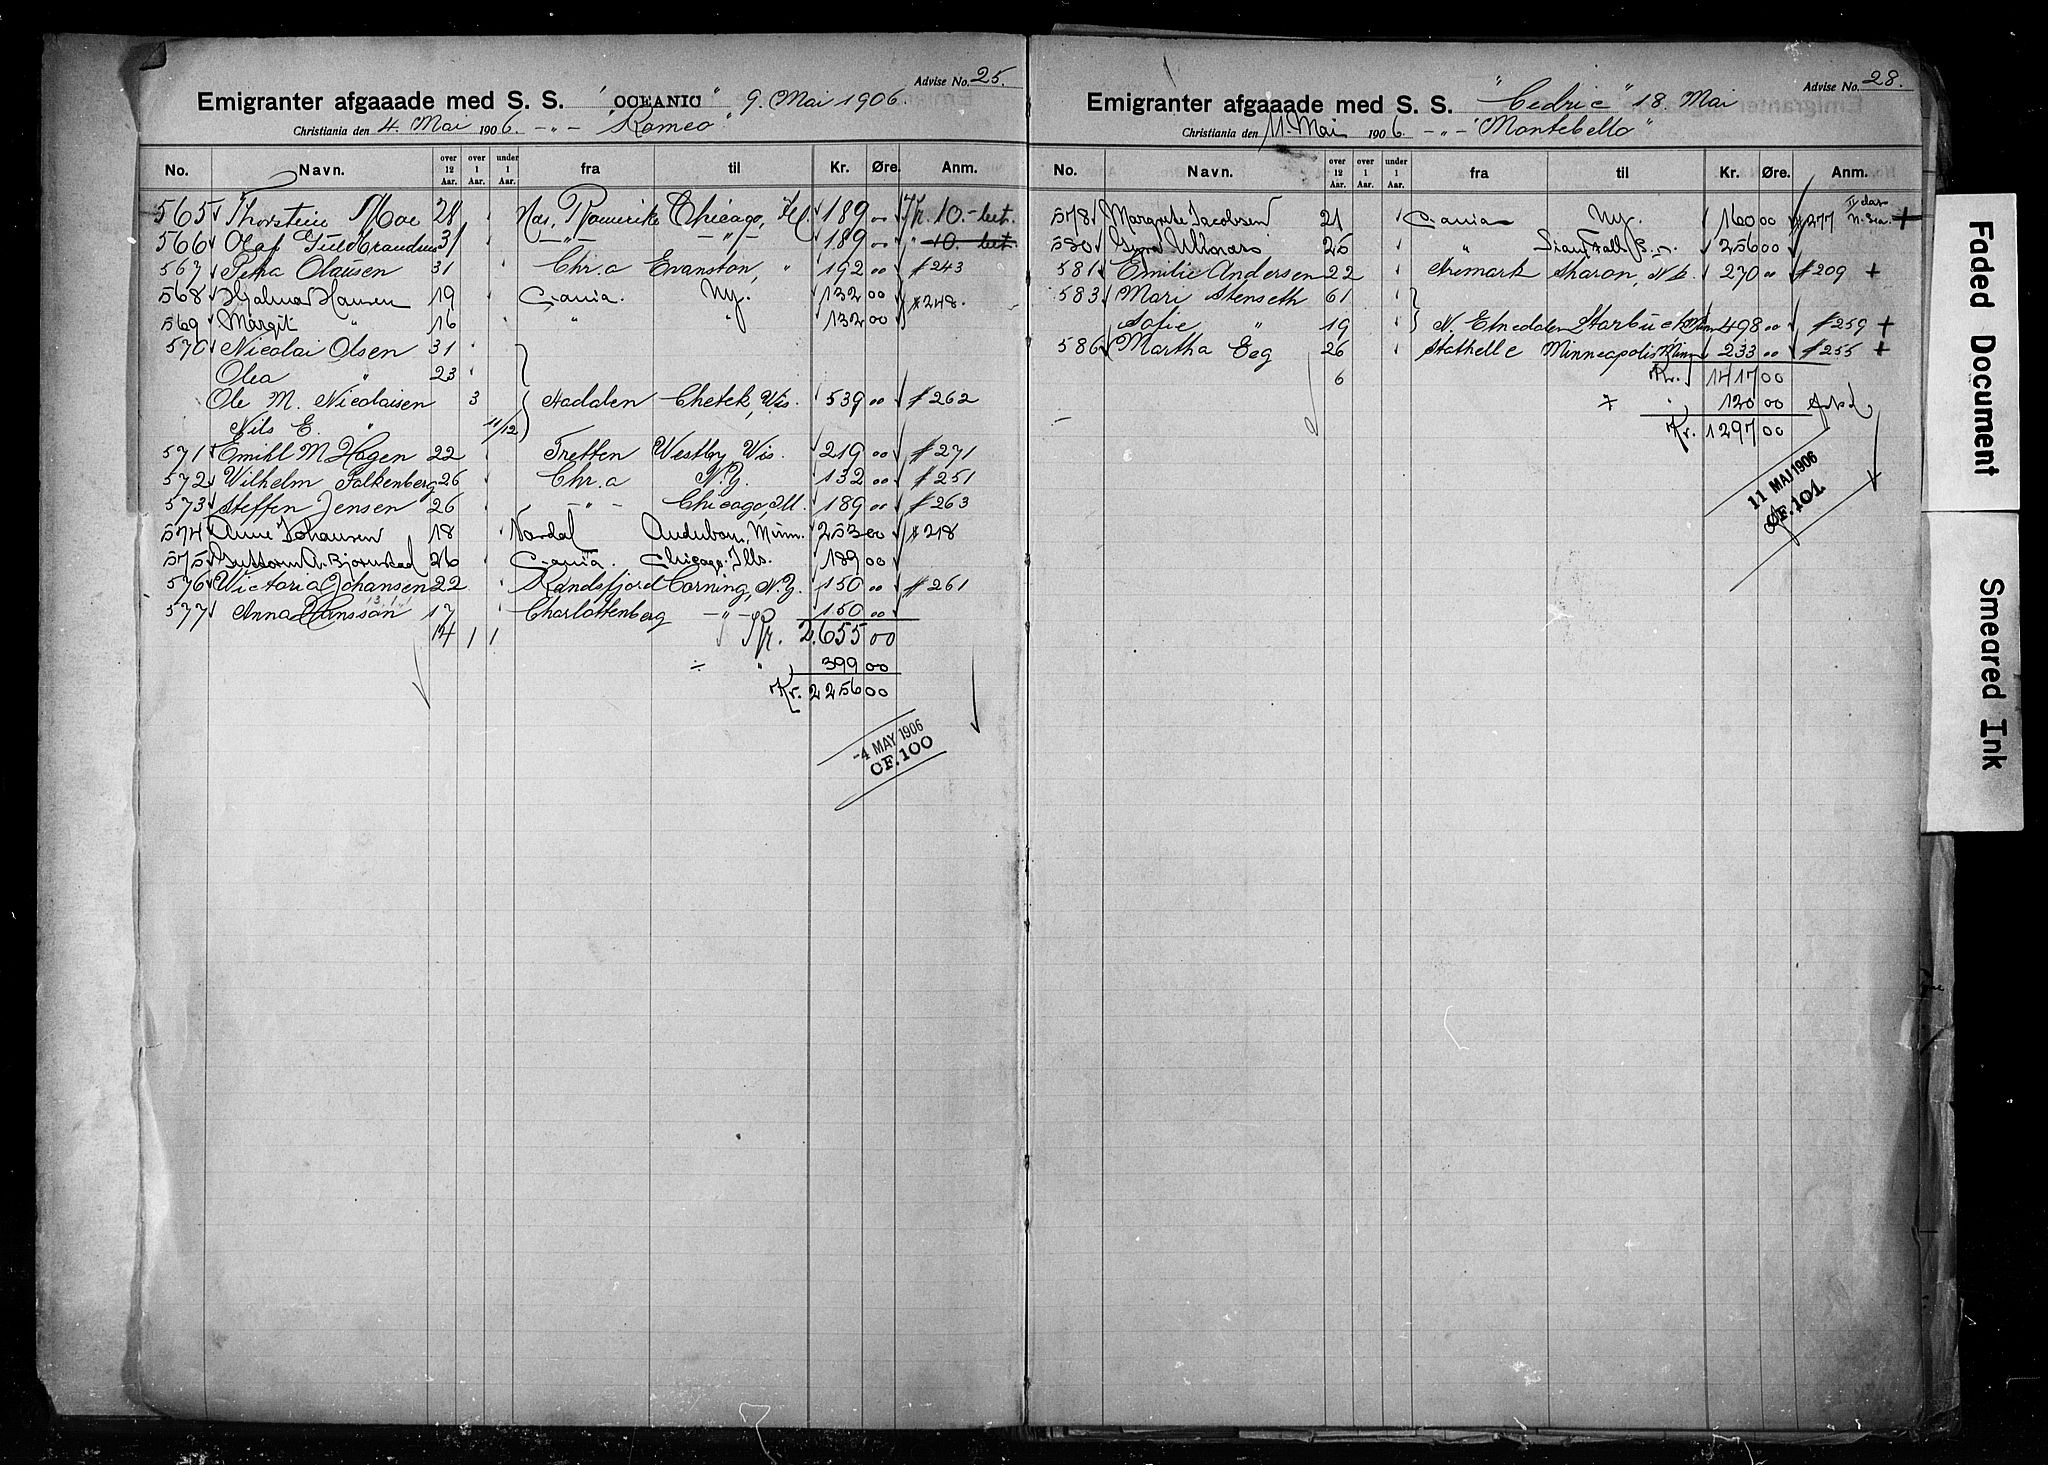 Advise No. 25.
Emigranter afgaaade med S. S. "OCEANIC" 9. Mai 1906.
Christiania den 4. Mai 1906. -"- "Romeo"
No. Navn. over 12 Aar. over 1 Aar. under 1 Aar. fra til Kr. Øre. Anm.
565 Thorstein Moe 28 Nas. Romerike Chicago, Ill. 189 00 Kr. 10.- bet.
566 Olaf Guldbrandsen 31 -"- -"- 189 00 " 10.- bet.
567 Petra Olausen 31 Chr.a Evanston, " 192 00 # 243
568 Hjalmar Hansen 19 C.ania. Ny. 132 00 # 248.
569 Margit " 16 " " 132 00
570 Nicolai Olsen 31
Olea " 23
Ole M. Nicolaisen 3 Aadalen Chetek, Wis. 539 00 # 262
Nils E. " 11/12
571 Emihl M Hagen 22 Tretten Westby Wis. 219 00 # 271
572 Wilhelm Falkenberg 26 Chr.a N.Y. 132 00 # 251
573 Steffen Jensen 26 -"- Chicago, Ill. 189 00 # 263
574 Anne Johansen 18 Nordal Audubon, Minn. 253 00 # 218
575 Guttorm A. Bjørnstad 26 C.ania. Chicago. Ills. 189 00
576 Victoria Johansen 22 Randsfjord Corning, N.Y. 150 00 # 261
577 Anna Hansson 17 Charlottenberg -"- 150 00
14 1 1 Kr. 2.655 00
÷ " 399 00
Kr. 2256 00
-4 MAY 1906
CF. 100
Advise No. 28.
Emigranter afgaaade med S. S. "Cedric" 18. Mai
Christiania den 11. Mai 1906. -"- "Montebello"
No. Navn. over 12 Aar. over 1 Aar. under 1 Aar. fra til Kr. Øre. Anm.
578 Margrete Jacobsen 21 C.ania Ny. 160 00 # 277 +
580 25 " 256 00
581 Emilie Andersen 22 Aremark Sharon, N.D. 270 00 # 209 +
583 Mari Stenseth 61
Sofie " 19 N. Etnedalen Starbuck Minn 498 00 # 259 +
586 Martha Eeg 26 Stathelle Minneapolis Minn 233 00 # 255 +
6 Kr. 1417 00
÷ " 120 00
Kr. 1297 00
11 MAI 1906
CF. 101.
Faded Document
Smeared Ink